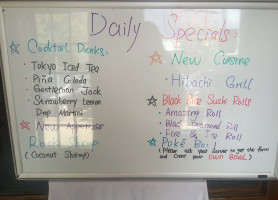 Daily Specials:
Cocktail Drinks:
• Tokyo Iced Tea
• Piña Colada
• Gentleman Jack
• Strawberry Lemon
Drop Martini
New Appetizer
Rock Shrimp
(Coconut Shrimp)
New Cuisine
• Hibachi Grill
Black Rice Sushi Rolls
• Amazing Roll
• Black Diamond Roll
• Fire & Roll
Poké Bowl
(Please ask your server to get the
and Create your OWN BOWL)